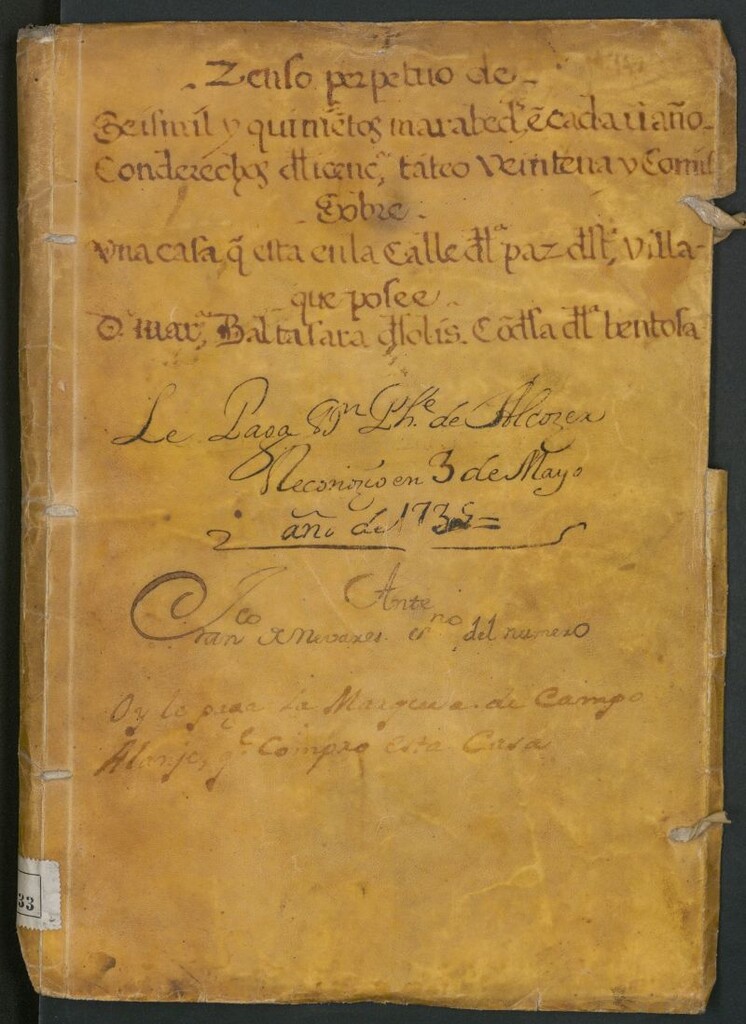 Zenso perpetuo de
Seismil y quiniẽtos marabed^s, ẽ cada ũ año
Con derechos dłicenc^a, tãteo Veintena y Comis
Sobre
Vna casa q̃ esta en la Calle dł^a paz dłt^a, Villa
que posee
D^a mar^a, Baltasara dsolis. Cõdsa dł^a bentosa
Le Paga Dⁿ Ph^e de Alcozer
Reconozio en 3 de Mayo
año de 1735
Ante
Fran^co de Nevares es^no del numero
Oy le paga La Marquesa de Campo
Alanje, q^e Compro esta Casa
33